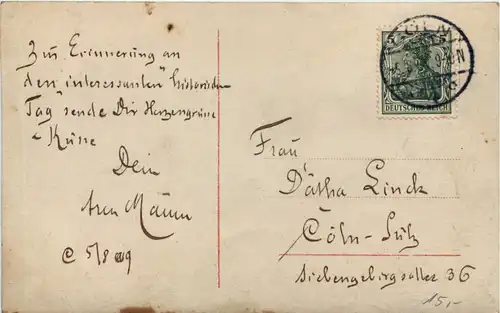 Zur Erinnerung an
den "interessanten" historischen
Tag sende Dir Herzensgrüsse
+ Küsse
Dein
Mann
C 5/8 09
5 5
CÖLN
DEUTSCHES REICH
Frau
Linck
Cöln-Sülz
Siebengebirgsallee 36
15,-